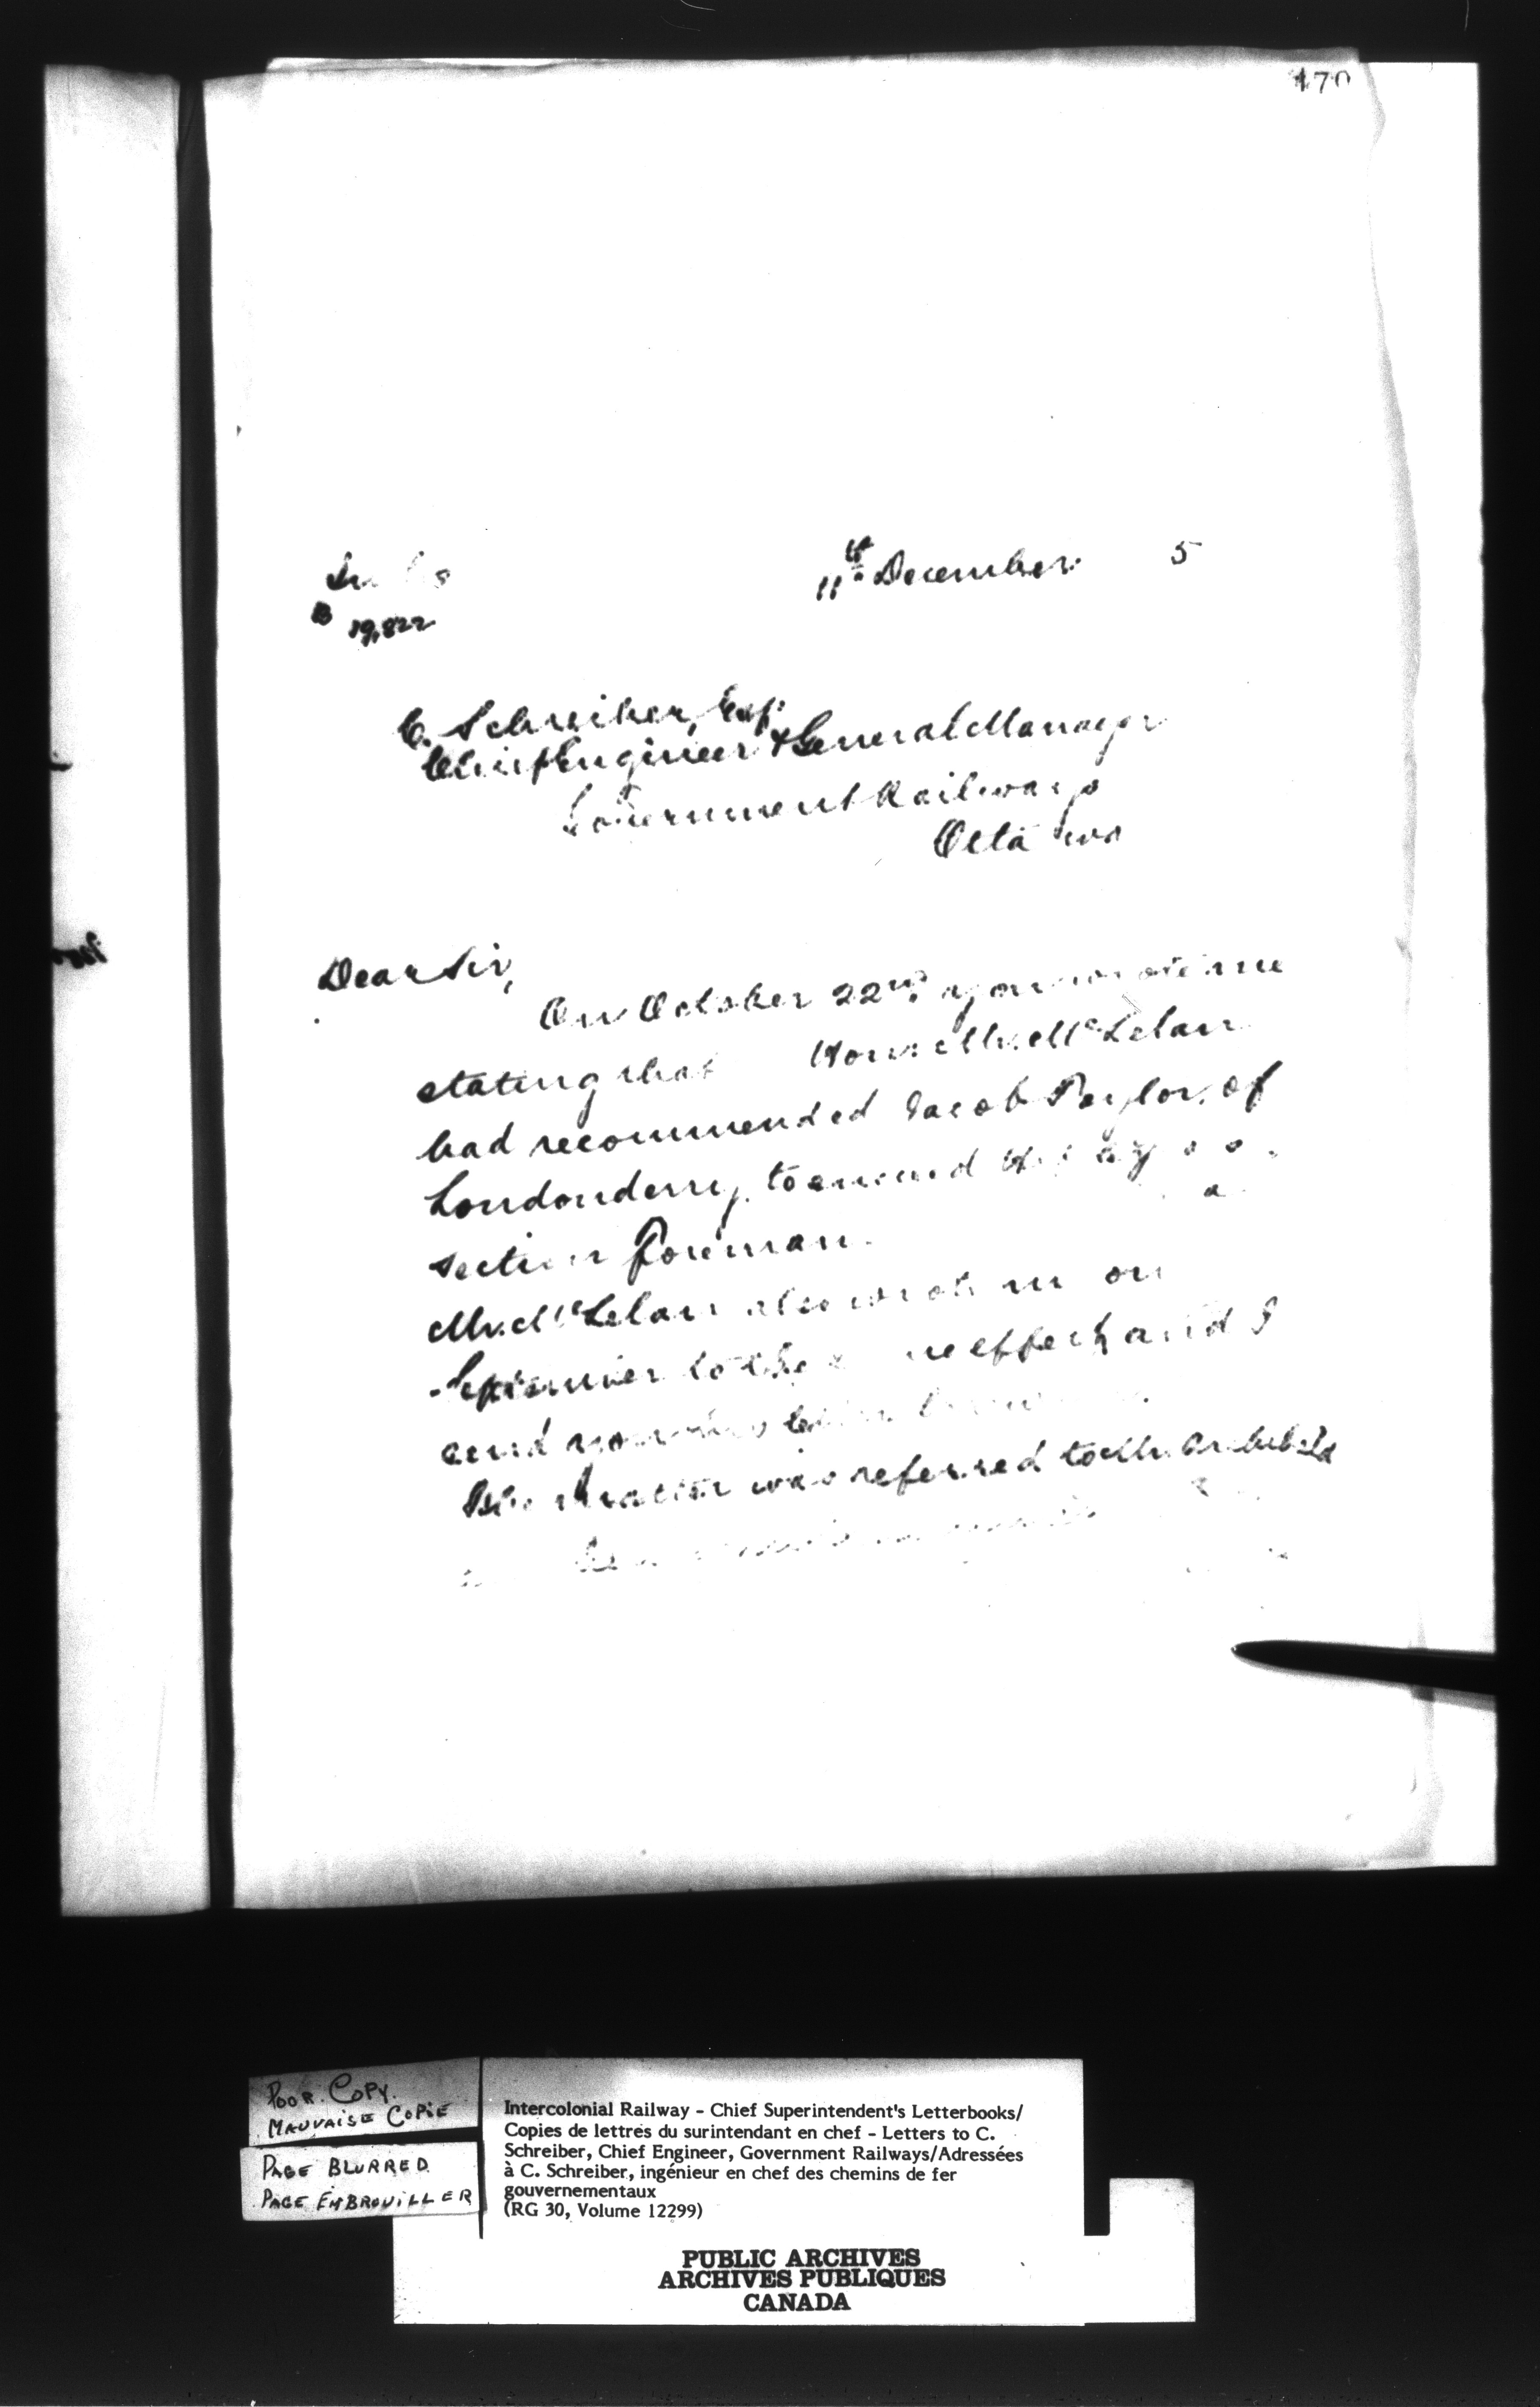 170
11th December 5
B 19,822
C. Schreiber, Esq.
Chief Engineer & General Manager
Government Railways
Ottawa
Dear Sir,
On October 22nd you wrote me
stating that Hon. Mr. McLelan
had recommended Jacob Taylor, of
Londonderry, to
section foreman.
Mr. McLelan also wrote me on
to the effect and I
send you his letter
The matter was referred to Mr. Archibald
POOR COPY.
MAUVAISE COPIE
PAGE BLURRED
PAGE EMBROUILLER
Intercolonial Railway - Chief Superintendent's Letterbooks/
Copies de lettres du surintendant en chef - Letters to C.
Schreiber, Chief Engineer, Government Railways/Adressées
à C. Schreiber, ingénieur en chef des chemins de fer
gouvernementaux
(RG 30, Volume 12299)
PUBLIC ARCHIVES
ARCHIVES PUBLIQUES
CANADA